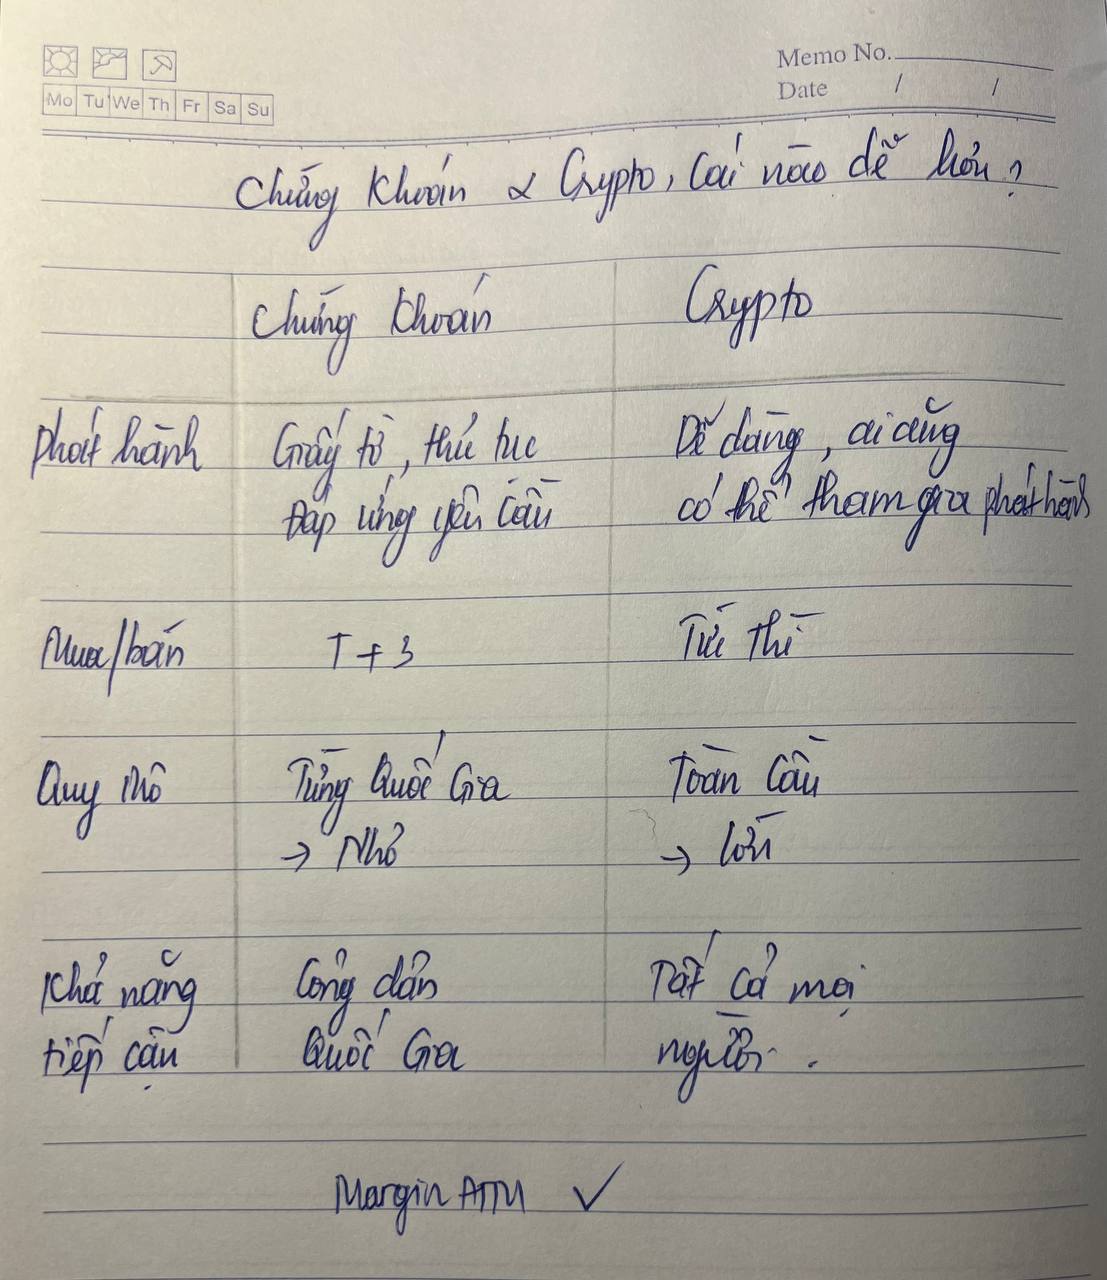 Memo No.
Mo Tu We Th Fr Sa Su
Date / /
Chứng khoán & Crypto, Cái nào dễ hơn?
Chứng khoán Crypto
Phát hành Giấy tờ, thủ tục Dễ dàng, ai cũng
Đáp ứng yêu cầu có thể tham gia phát hành
Mua/bán T+3 Tức thì
Quy mô Từng Quốc Gia Toàn Cầu
→ Nhỏ → Lớn
Khả năng Công dân Tất cả mọi
tiếp cận Quốc Gia người.
Margin ATM ✓